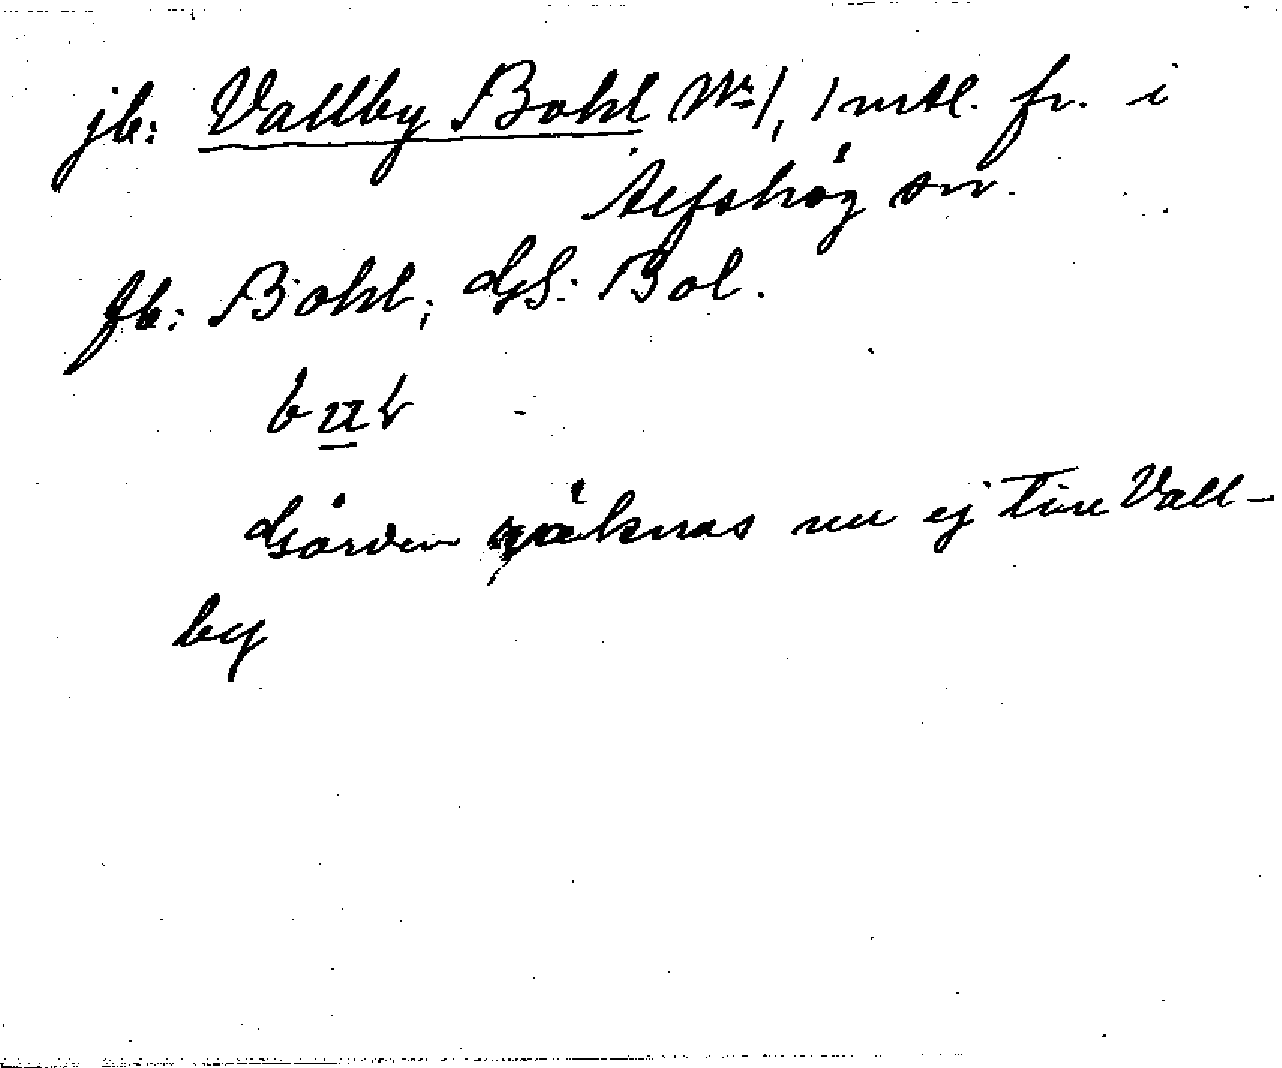 jb: Vallby Bohl No 1, 1 mtl. fr. i
Alfshög sn.
fb: Bohl; GS: Bol.
Gården räknas nu ej till Vall-
by